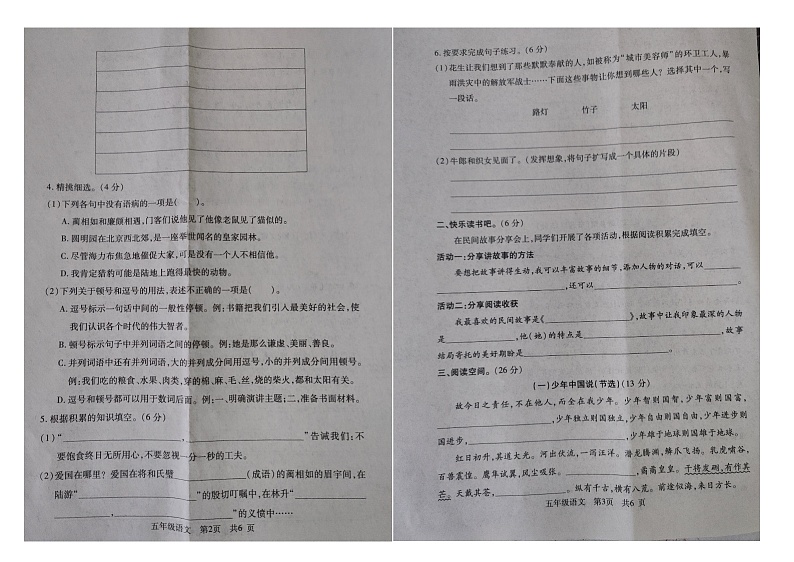 4. 精挑细选。(4 分)
(1)下列各句中没有语病的一项是(　　)。
A. 蔺相如和廉颇相遇,门客们说他见了他像老鼠见了猫似的。
B. 圆明园在北京西北郊,是一座举世闻名的皇家园林。
C. 尽管海力布焦急地催促大家,可是没有一个人不相信他。
D. 我肯定猎豹可能是陆地上跑得最快的动物。
(2)下列关于顿号和逗号的用法,表述不正确的一项是(　　)。
A. 逗号标示一句话中间的一般性停顿。例:书籍把我们引入最美好的社会,使
我们认识各个时代的伟大智者。
B. 顿号标示句子中并列词语之间的停顿。例:她那么谦虚、美丽、善良。
C. 并列词语中还有并列词语,大的并列成分间用逗号,小的并列成分间用顿号。
例:我们吃的粮食、水果、肉类,穿的棉、麻、毛、丝,烧的柴火,都和太阳有关。
D. 逗号和顿号都可以用于数词后面。例:一、明确演讲主题;二,准备书面材料。
5. 根据积累的知识填空。(6 分)
(1)“________________,________________”告诫我们:不
要饱食终日无所用心,不要忽视一分一秒的工夫。
(2)爱国在哪里?爱国在将和氏璧____________(成语)的蔺相如的眉宇间,在
陆游“________________”的殷切叮嘱中,在林升“____________
____________,________________”的义愤中……
五年级语文　第2页　共6页
6. 按要求完成句子练习。(6 分)
(1)花生让我们想到了那些默默奉献的人,如被称为“城市美容师”的环卫工人,暴
雨洪灾中的解放军战士……下面这些事物让你想到哪些人?选择其中一个,写
一段话。
路灯　竹子　太阳
(2)牛郎和织女见面了。(发挥想象,将句子扩写成一个具体的片段)
二、快乐读书吧。(6 分)
在民间故事分享会上,同学们开展了各项活动,根据阅读积累完成填空。
活动一:分享讲故事的方法
要想把故事讲得生动,我可以丰富故事的细节,添加人物的对话,可以________
________________,还可以________________。
活动二:分享阅读收获
我最喜欢的民间故事是《________________》,故事中让我印象最深的人物
是____________,他(她)的特点是________________,故事
结局寄托的美好期盼是________________。
三、阅读空间。(26 分)
(一)少年中国说(节选)(13 分)
故今日之责任,不在他人,而全在我少年。少年智则国智,少年富则国富,
________________,少年独立则国独立,少年自由则国自由,少年进步则
国进步,________________,少年雄于地球则国雄于地球。
红日初升,其道大光。河出伏流,一泻汪洋。潜龙腾渊,鳞爪飞扬。乳虎啸谷,
百兽震惶。鹰隼试翼,风尘吸张。____________,矞矞皇皇。干将发硎,有作其
芒。天戴其苍,____________。纵有千古,横有八荒。前途似海,来日方长。
五年级语文　第3页　共6页